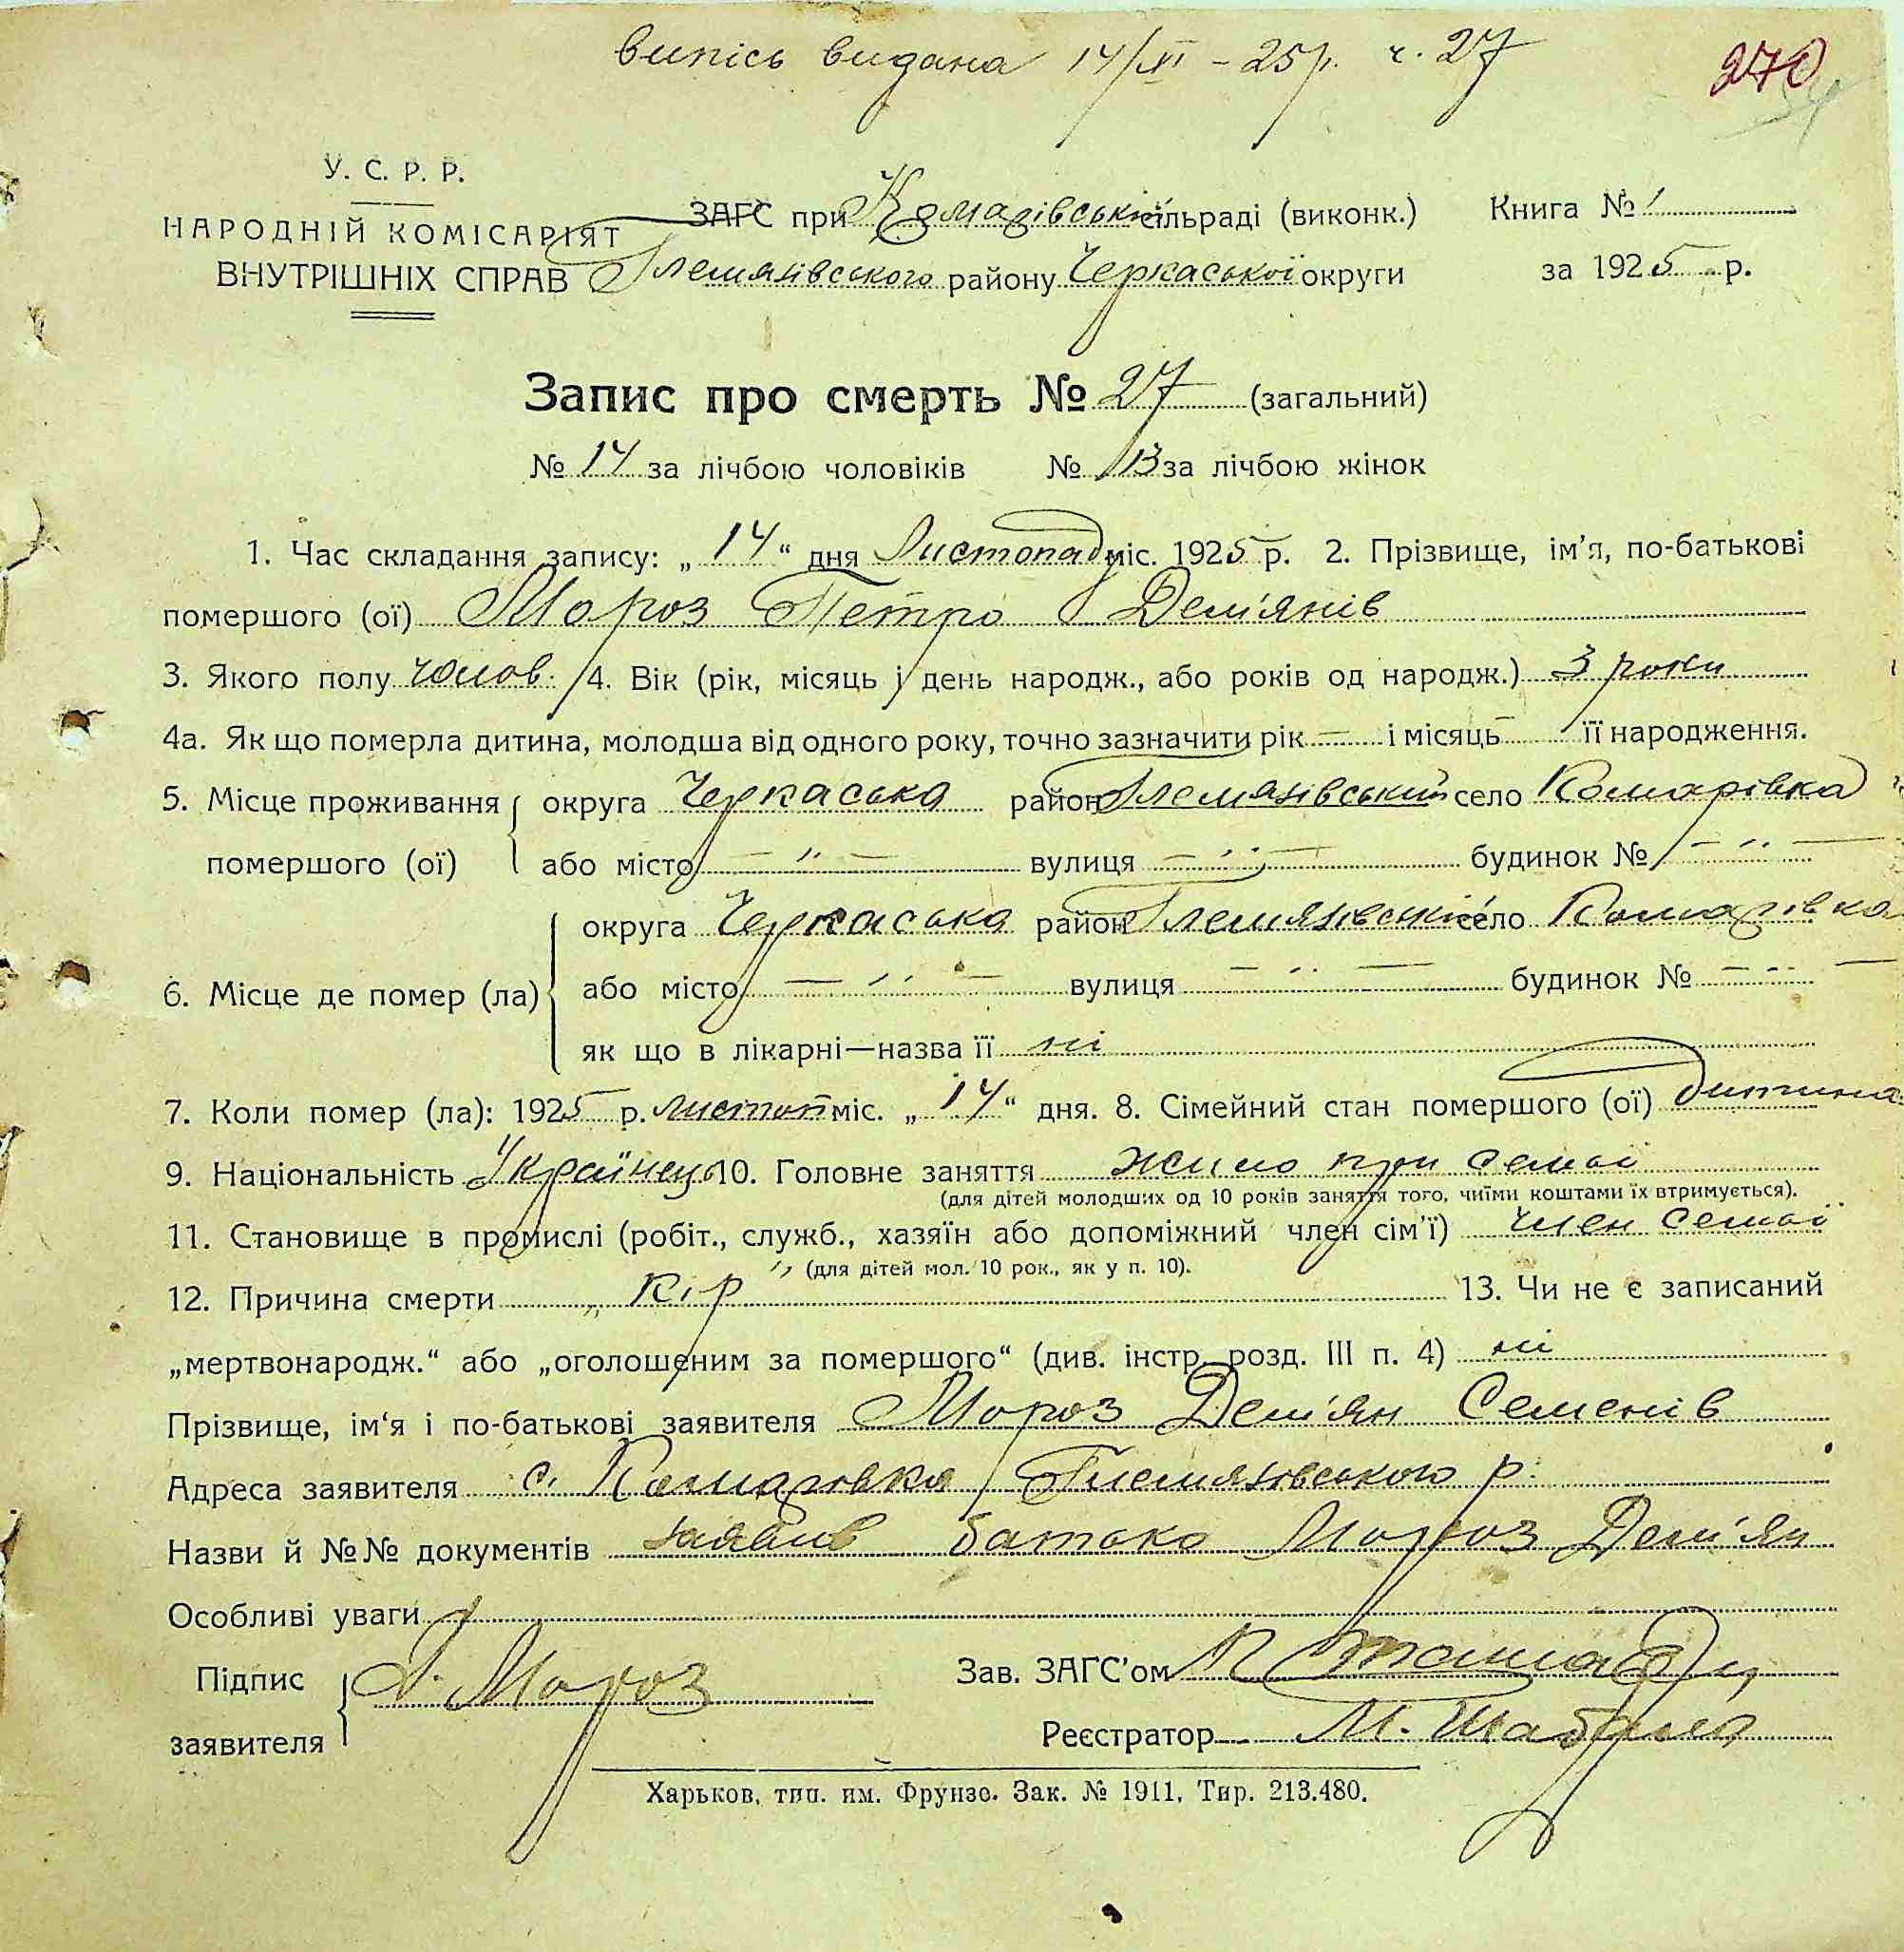 випісь видана 14/XI - 25р. ч. 27
270
У. С. Р. Р.
НАРОДНІЙ КОМІСАРІЯТ
ВНУТРІШНІХ СПРАВ
ЗАГС при Комарівській сільраді (виконк.)
Гельмязівського району Черкаської округи
Книга № 1
за 1925 р.
Запис про смерть № 27 (загальний)
№ 14 за лічбою чоловіків № 13 за лічбою жінок
1. Час складання запису: „ 14 “ дня Листопаду міс. 1925 р. 2. Прізвище, ім’я, по-батькові
помершого (ої) Мороз Петро Дем'янів
3. Якого полу чолов. 4. Вік (рік, місяць і день народж., або років од народж.) 3 роки
4а. Як що померла дитина, молодша від одного року, точно зазначити рік — і місяць — її народження.
5. Місце проживання помершого (ої) округа Черкаська район село Комарівка
або місто — „ — вулиця — „ — будинок № — „ —
6. Місце де помер (ла) округа Черкаська район село Комарівка
або місто — „ — вулиця — „ — будинок № — „ —
як що в лікарні—назва її ні
7. Коли помер (ла): 1925 р. листоп міс. „ 14 “ дня. 8. Сімейний стан помершого (ої) Дитина
9. Національність Українець 10. Головне заняття жило при семьї
(для дітей молодших од 10 років заняття того, чиїми коштами їх втримується).
11. Становище в промислі (робіт., служб., хазяїн або допоміжний член сім’ї) член семьї
(для дітей мол. 10 рок., як у п. 10).
12. Причина смерти „ Кір “ 13. Чи не є записаний
„мертвонародж.“ або „оголошеним за помершого“ (див. інстр. розд. III п. 4) ні
Прізвище, ім‘я і по-батькові заявителя Мороз Дем'ян Семенів
Адреса заявителя с. Комарівка р.
Назви й №№ документів заявив батько Мороз Дем'ян
Особливі уваги
Підпис заявителя Д. Мороз
Зав. ЗАГС’ом
Реєстратор М.
Харьков, тип. им. Фрунзе. Зак. № 1911. Тир. 213.480.